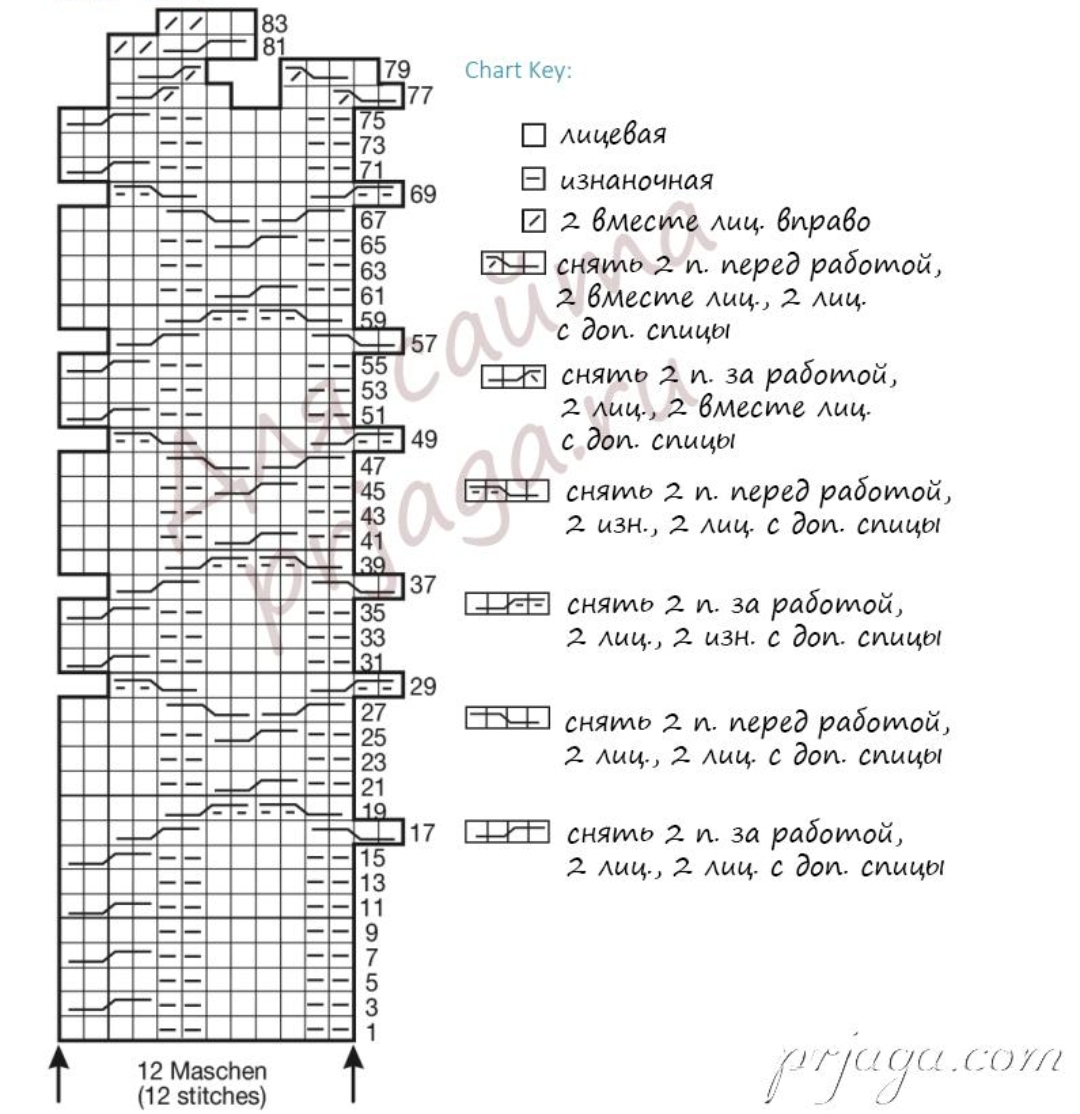 83
81
79
77
75
73
71
69
67
65
63
61
59
57
55
53
51
49
47
45
43
41
39
37
35
33
31
29
27
25
23
21
19
17
15
13
11
9
7
5
3
1
12 Maschen
(12 stitches)
Chart Key:
лицевая
изнаночная
2 вместе лиц. вправо
снять 2 п. перед работой,
2 вместе лиц., 2 лиц.
с доп. спицы
снять 2 п. за работой,
2 лиц., 2 вместе лиц.
с доп. спицы
снять 2 п. перед работой,
2 изн., 2 лиц. с доп. спицы
снять 2 п. за работой,
2 лиц., 2 изн. с доп. спицы
снять 2 п. перед работой,
2 лиц., 2 лиц. с доп. спицы
снять 2 п. за работой,
2 лиц., 2 лиц. с доп. спицы
Для сайта
prjaga.ru
prjaga.com